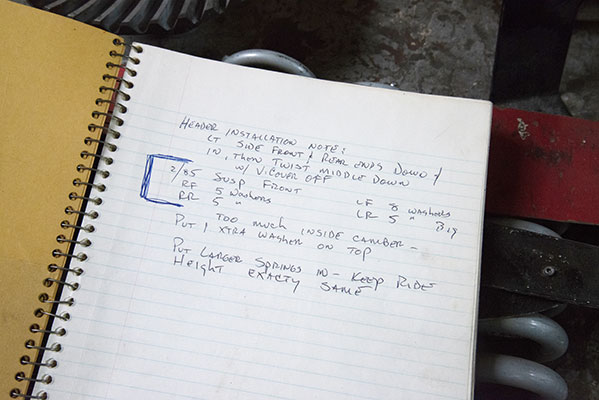 HEADER INSTALLATION NOTE:
LT SIDE FRONT & REAR ENDS DOWN &
IN, THEN TWIST MIDDLE DOWN
W/ V. COVER OFF
2/85 SUSP FRONT
RF 5 WASHERS LF 8 WASHERS
RR 5 " LR 5 " BIG
TOO MUCH INSIDE CAMBER -
PUT 1 XTRA WASHER ON TOP
PUT LARGER SPRINGS IN - KEEP RIDE
HEIGHT EXACTY SAME